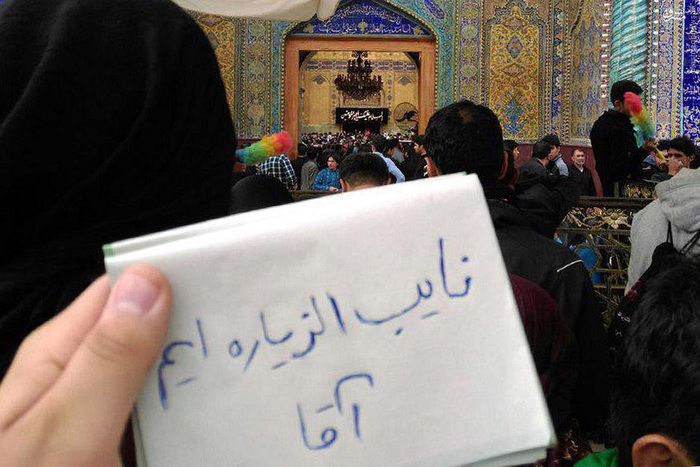 نایب الزیاره ایم
آقا